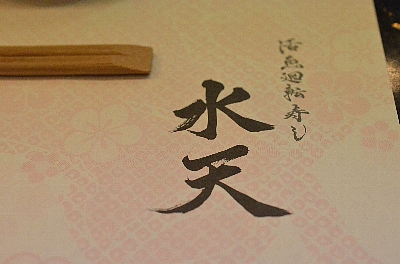 活魚廻転寿し
水天